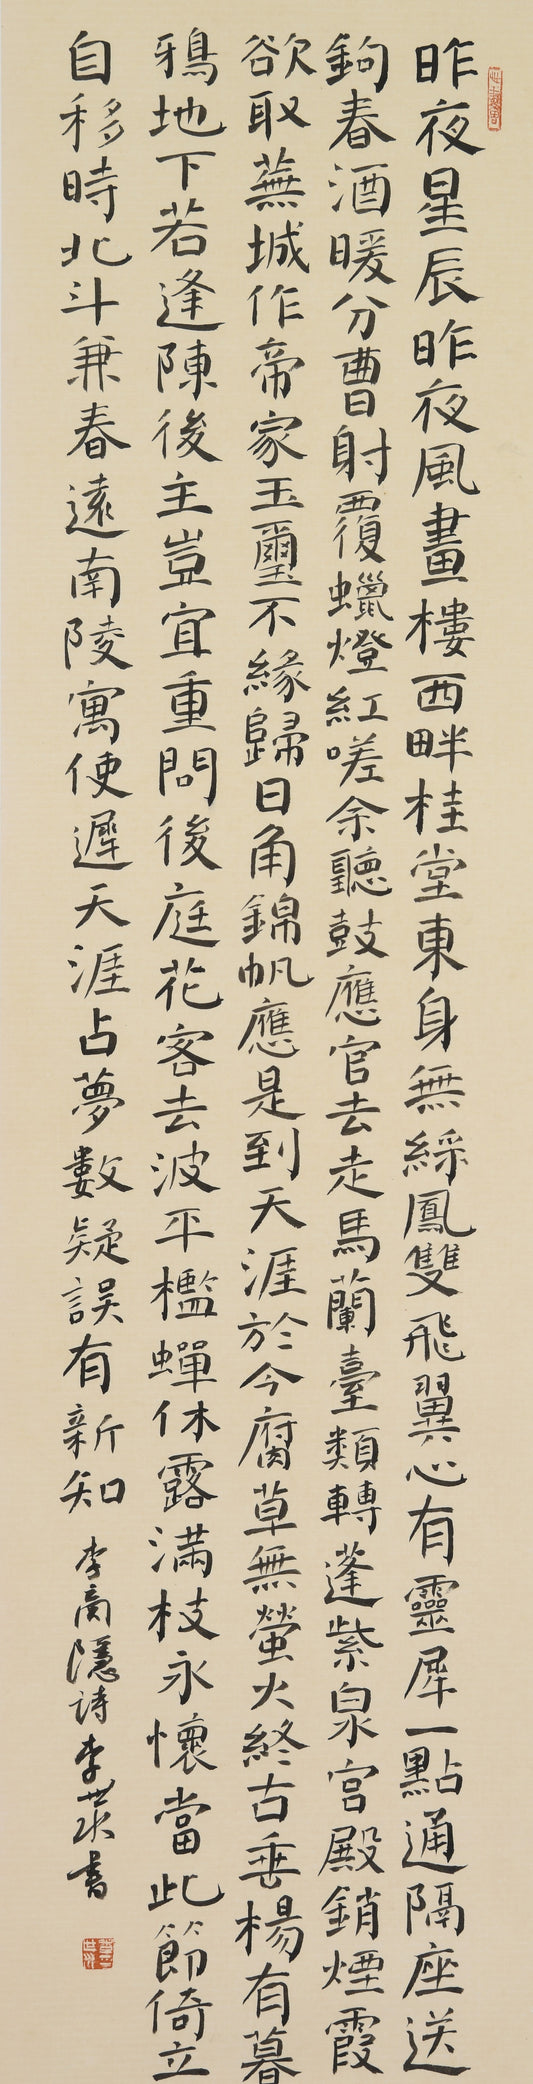 昨夜星辰昨夜風畫樓西畔桂堂東身無綵鳳雙飛翼心有靈犀一點通隔座送
鉤春酒暖分曹射覆蠟燈紅嗟余聽鼓應官去走馬蘭臺類轉蓬紫泉宮殿銷煙霞
欲取蕪城作帝家玉璽不緣歸日角錦帆應是到天涯於今腐草無螢火終古垂楊有暮
鴉地下若逢陳後主豈宜重問後庭花客去波平檻蟬休露滿枝永懷當此節倚立
自移時北斗兼春遠南陵寓使遲天涯占夢數疑誤有新知 李商隱詩李世書